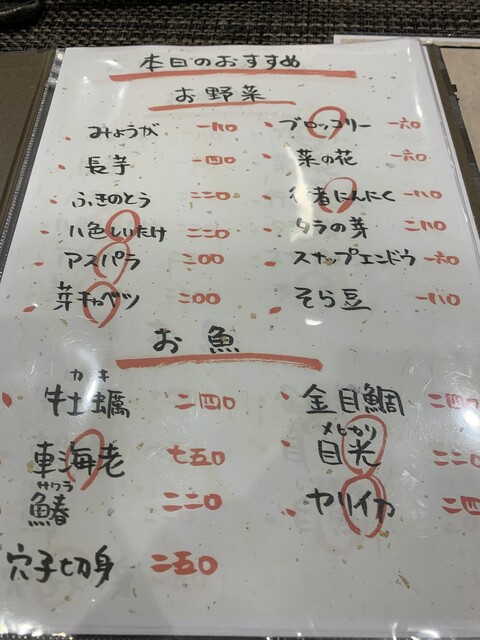 本日のおすすめ
お野菜
みょうが 一一〇
長芋 一四〇
ふきのとう 二二〇
八色しいたけ 二二〇
アスパラ 二〇〇
芽キャベツ 二〇〇
ブロッコリー 一六〇
菜の花 一六〇
行者にんにく 一一〇
タラの芽 二一〇
スナップエンドウ 一六〇
そら豆 一一〇
お魚
カキ
牡蠣 二四〇
車海老 七五〇
サワラ
鰆 二二〇
穴子切身 二五〇
金目鯛 二四〇
メヒカリ
目光 二二〇
ヤリイカ 二四